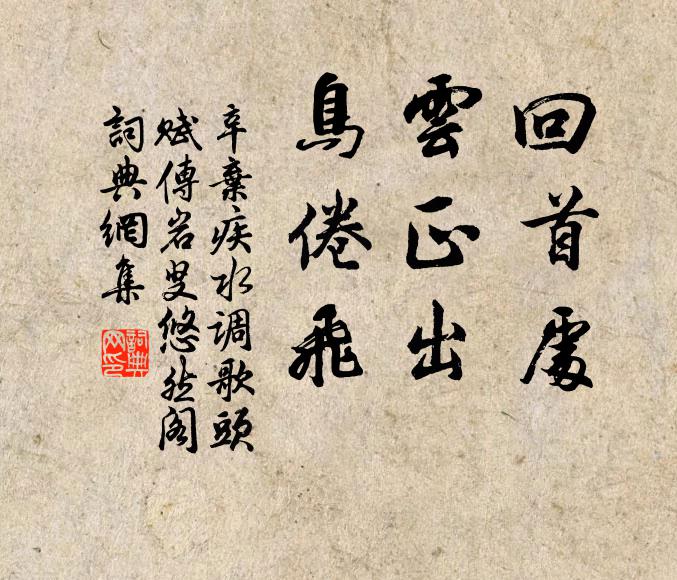 回首處
雲正出
鳥倦飛
辛棄疾水调歌頭
賦傅岩叟悠然阁
詞典網集
詞典网印